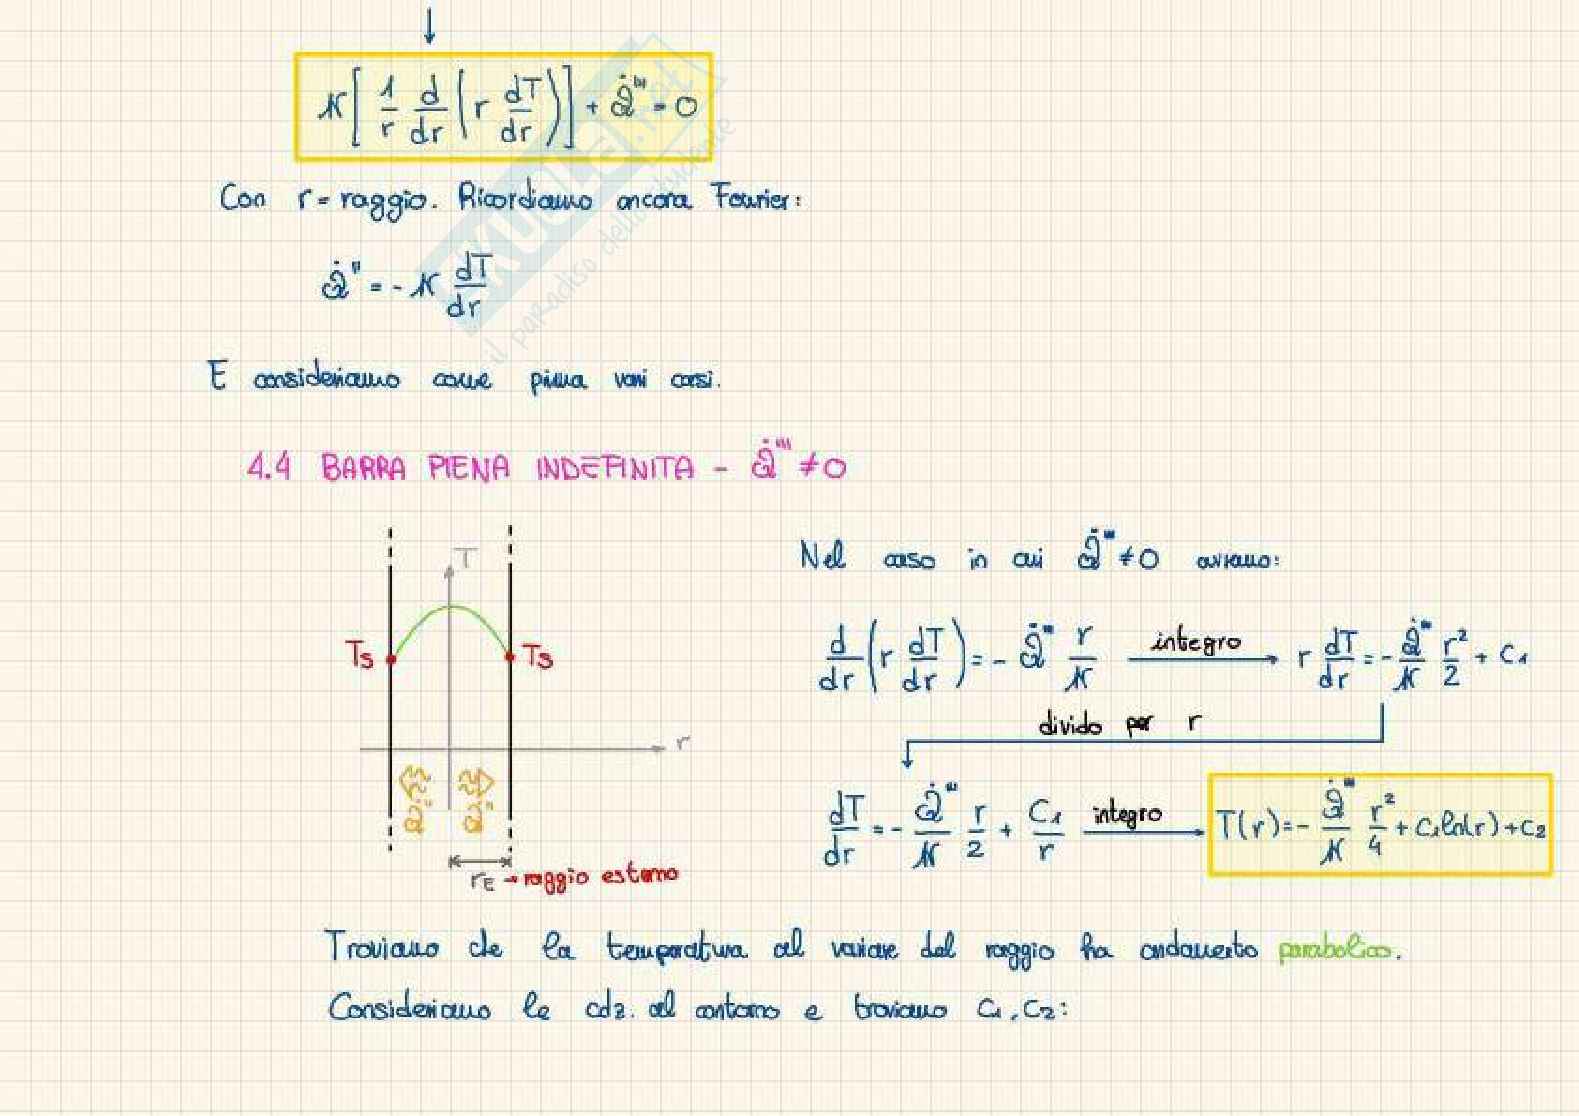 K[1/r d/dr (r dT/dr)] + Q̇''' = 0
Con r = raggio. Ricordiamo ancora Fourier:
Q̇'' = - K dT/dr
E consideriamo come prima vari casi.
4.4 BARRA PIENA INDEFINITA - Q̇''' ≠ 0
T
Ts
Ts
r
Q̇''
Q̇''
rE → raggio esterno
Nel caso in cui Q̇''' ≠ 0 avviamo:
d/dr (r dT/dr) = - Q̇''' r/K integro r dT/dr = - Q̇'''/K r²/2 + C₁
divido per r
dT/dr = - Q̇'''/K r/2 + C₁/r integro T(r) = - Q̇'''/K r²/4 + C₁ln(r) + C₂
Troviamo che la temperatura al variare del raggio ha andamento parabolico.
Consideriamo le cdz. al contorno e troviamo C₁, C₂:
SKUOLA.net
il paradiso dello studente